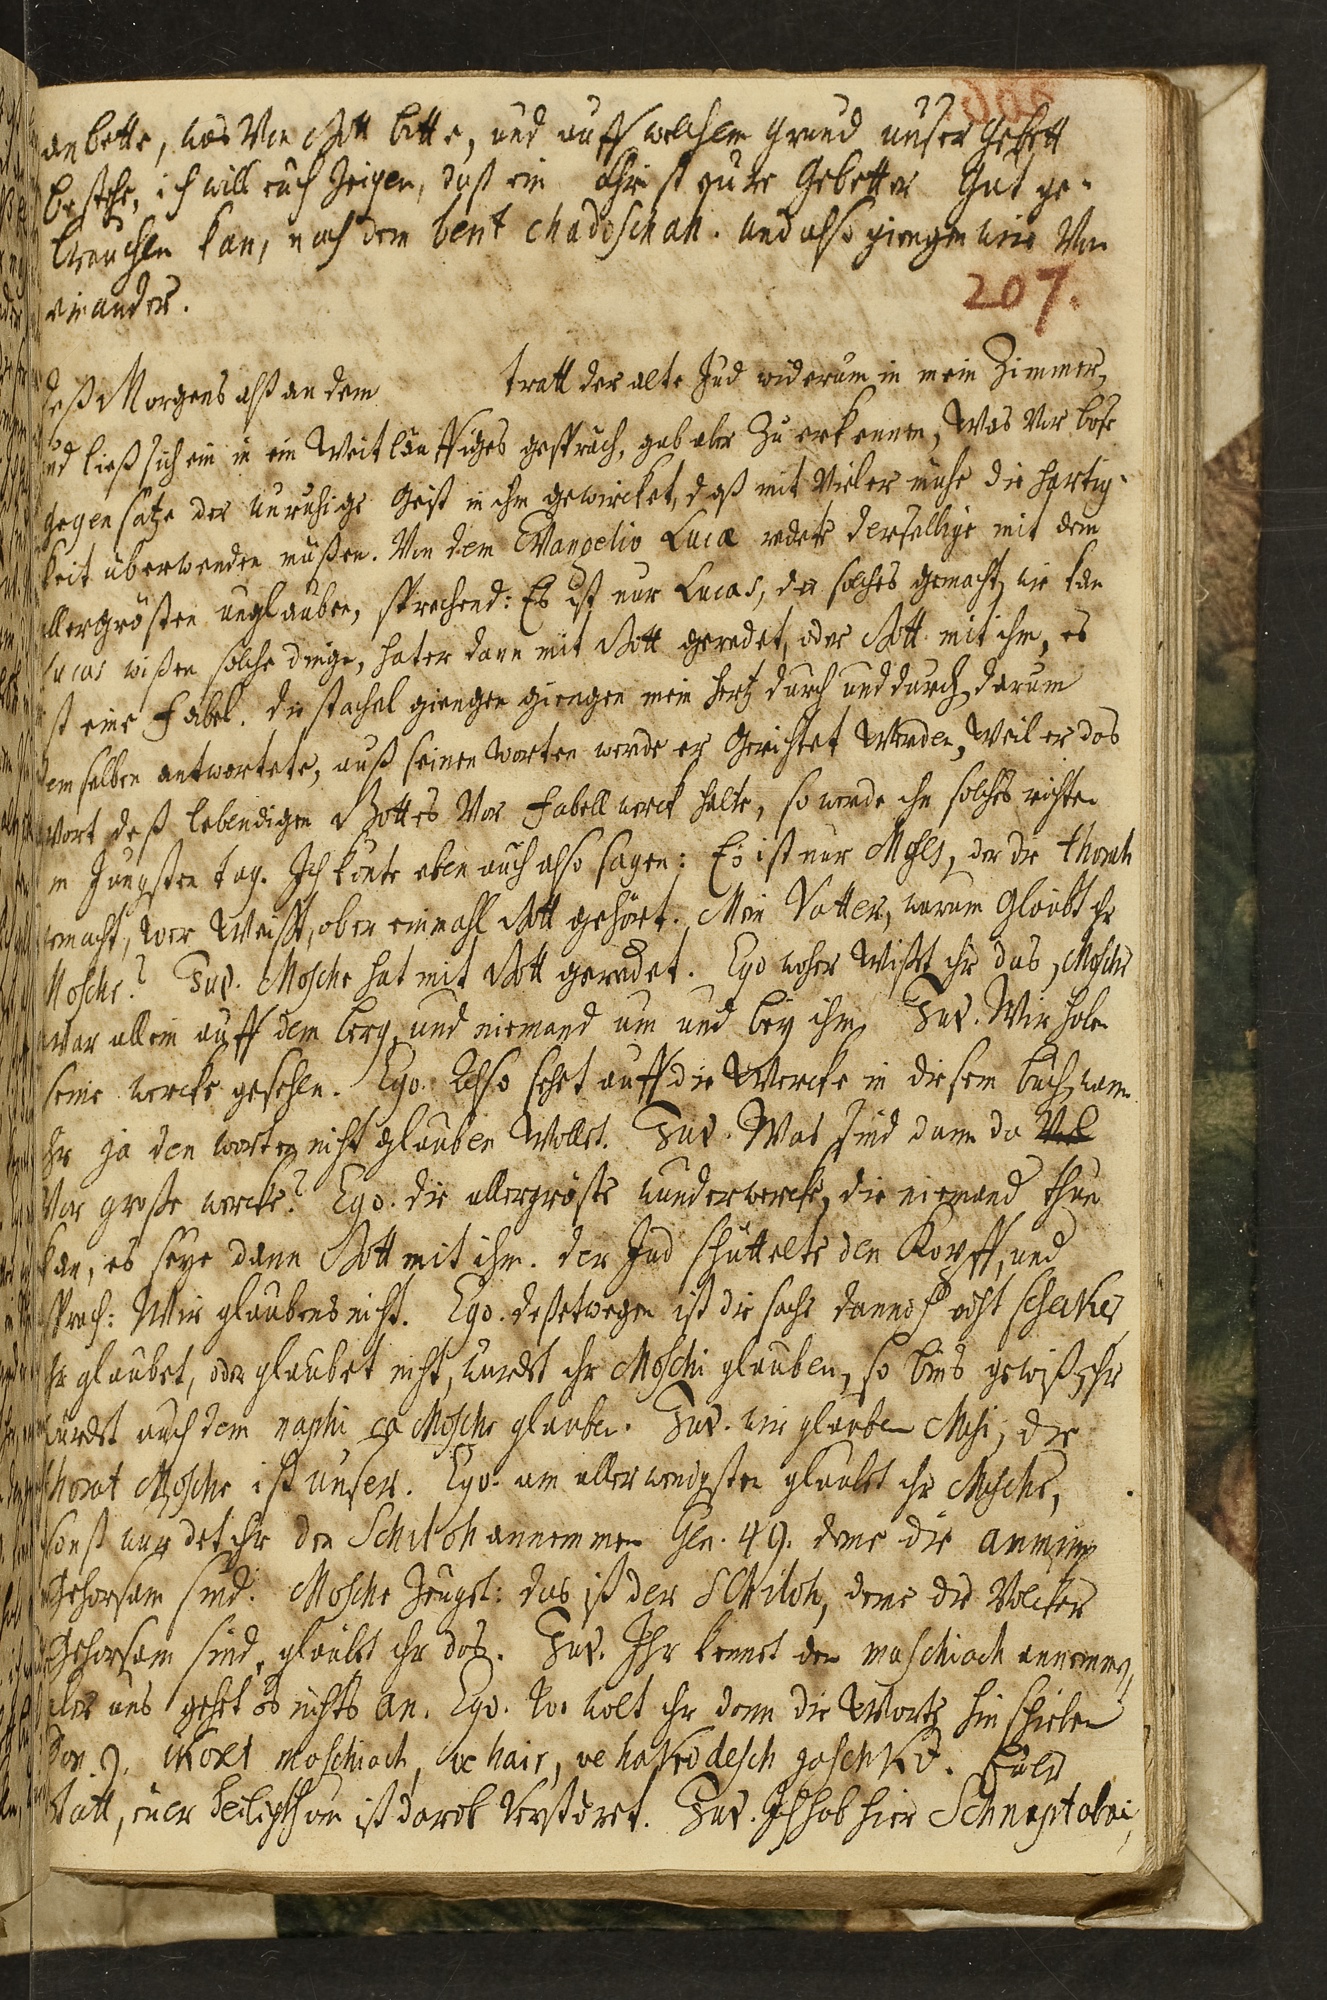 anbette, was Von Gott bitte, und auff welchem grund unser Gebett
bestehe, ich will euch zeigen, daß ein Christ eure Gebetter Gut ge-
brauchen kan, nach dem berit chadoschah. und also giengen wir Von
einander.
207.
deß Morgens alß an dem tratt der alte Jud widerum in mein Zimmer,
und ließ sich ein in ein Weitläuffiges gespräch, gab aber Zu erkennen, Was Vor böse
gegensätze der unruhige Geist in ihm gewircket, daß mit Vieler mühe die hertig-
keit überwenden müßen. Von dem EVangelio Lucæ redete derselbige mit dem
allergrösten unglauben, sprechend: Es ist nur Lucas, der solches gemacht, wie kan
Lucas wißen solche dinge, hat er dann mit Gott geredet, oder Gott mit ihm, es
ist eine Fabel. die stachel giengen giengen mein hertz durch und durch, darum
demselben antwortete, auß seinen worten werde er Gerichtet Werden, Weil er das
wort deß lebendigen Gottes Vor Fabellwerck halte, so werde ihn solches richten
am Jüngsten tag. Ich könte eben auch also sagen: Es ist nur Moses, der die thorah
gemacht, wer Weißt, ob er einmahl Gott gehört. Mein Vatter, warum Glaubt ihr
Mosche? Jud. Mosche hat mit Gott geredet. Ego woher Wißt ihr das, Mosche
war allein auff dem berg, und niemand um und bey ihm. Jud. Wir haben
seine wercke gesehen. Ego. Also sehet auff die Wercke in diesem buch, wann
ihr ja den worten nicht glauben Wollet. Jud. Was sind dann da
Vor große wercke? Ego. die allergröste wunderwercke, die niemand thun
kan, es seye dann Gott mit ihm. der Jud schüttelte den Kopff, und
sprach: Wir glaubens nicht. Ego. deßetwegen ist die sache dannoch nicht scheker,
ihr glaubet, oder glaubet nicht, würdet ihr Moschi glauben, so bins gewiß, ihr
würdet auch dem naphi ca Mosche glauben. Jud. wir glauben Mosi, die
thorat Mosche ist unser. Ego. am allerwenigsten glaubet ihr Mosche,
sonst wurdet ihr den Schiloh annemmen Gen. 49. deme die ammim
Gehorsam sind. Mosche zeuget: das ist der SChiloh, deme die Völcker
Gehorsam sind, glaubt ihr das. Jud. Ihr kennet den maschiach annemmen,
aber uns gehet es nichts an. Ego. Wo wolt ihr dann die Worte hin schieben
Dan. 9. ikoret moschiach, ve hair, ve hakodesch jaschkid. Eure
Statt, euer heiligthum ist darob Verstöret. Jud. Ich hab hier Schnaptobai,